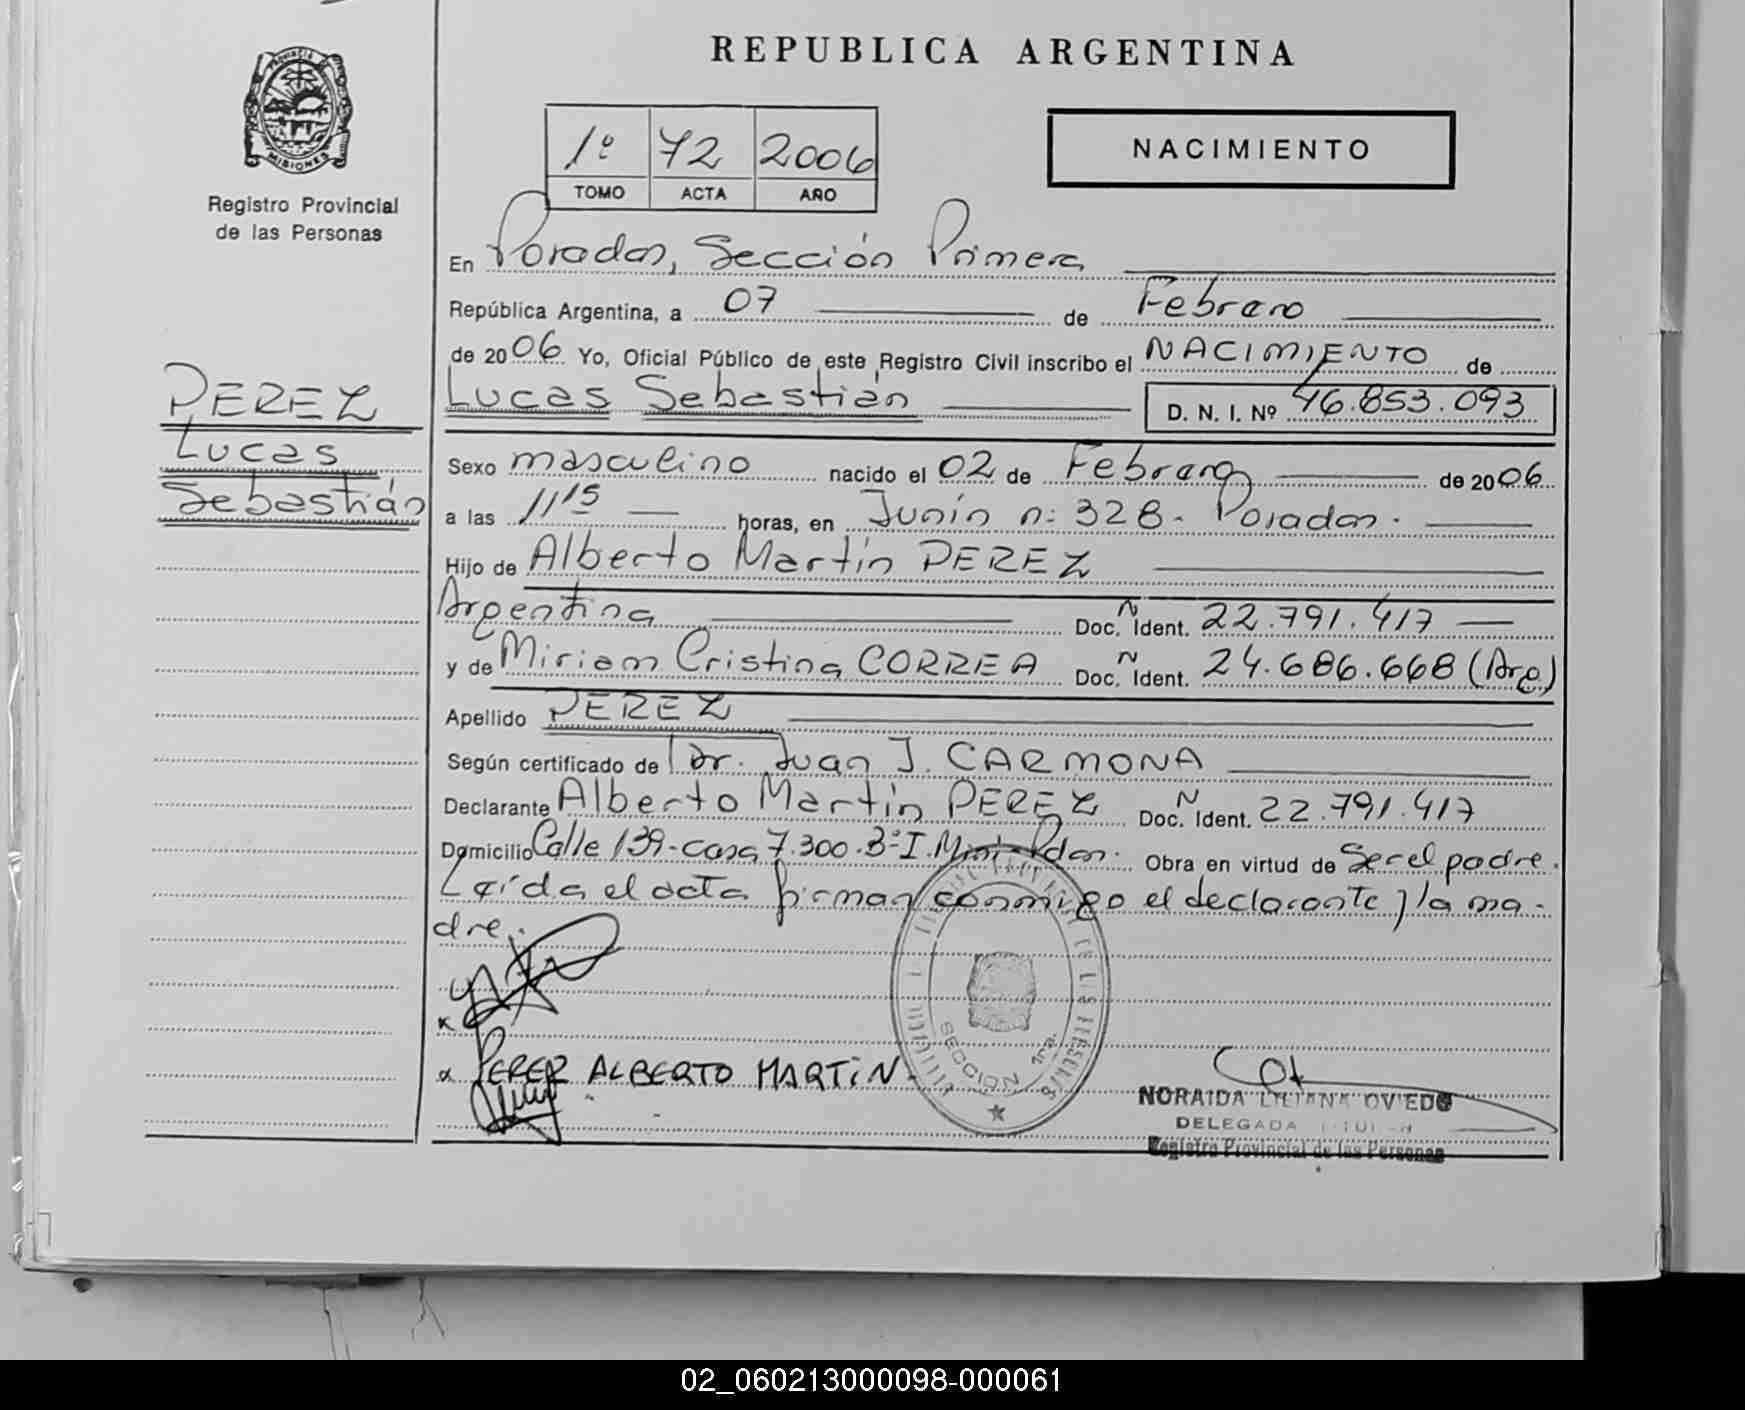 REPUBLICA ARGENTINA
PROVINCIA DE
MISIONES
Registro Provincial
de las Personas
1º 72 2006
TOMO ACTA AÑO
NACIMIENTO
En Posadas, Sección Primera
República Argentina, a 07 de Febrero
de 2006 Yo, Oficial Público de este Registro Civil inscribo el NACIMIENTO de
Lucas Sebastián D. N. I. Nº 46.853.093
PEREZ
Lucas
Sebastián
Sexo masculino nacido el 02 de Febrero de 2006
a las 11 15 horas, en Junín n: 328 - Posadas.
Hijo de Alberto Martín PEREZ
Argentina Doc. N Ident. 22.791.417
y de Miriam Cristina CORREA Doc. N Ident. 24.686.668 (Arg)
Apellido PEREZ
Según certificado de Dr. Juan J. CARMONA
Declarante Alberto Martín PEREZ Doc. N Ident. 22.791.417
Domicilio Calle 139 - casa 7.300 - Bº I. Pdas. Obra en virtud de Ser el padre.
Leída el acta firman conmigo el declarante y la ma-
dre.
x
x PEREZ ALBERTO MARTIN
SECCION 1ra.
NORAIDA LILIANA OVIEDO
DELEGADA
Registro Provincial de las Personas
02_060213000098-000061